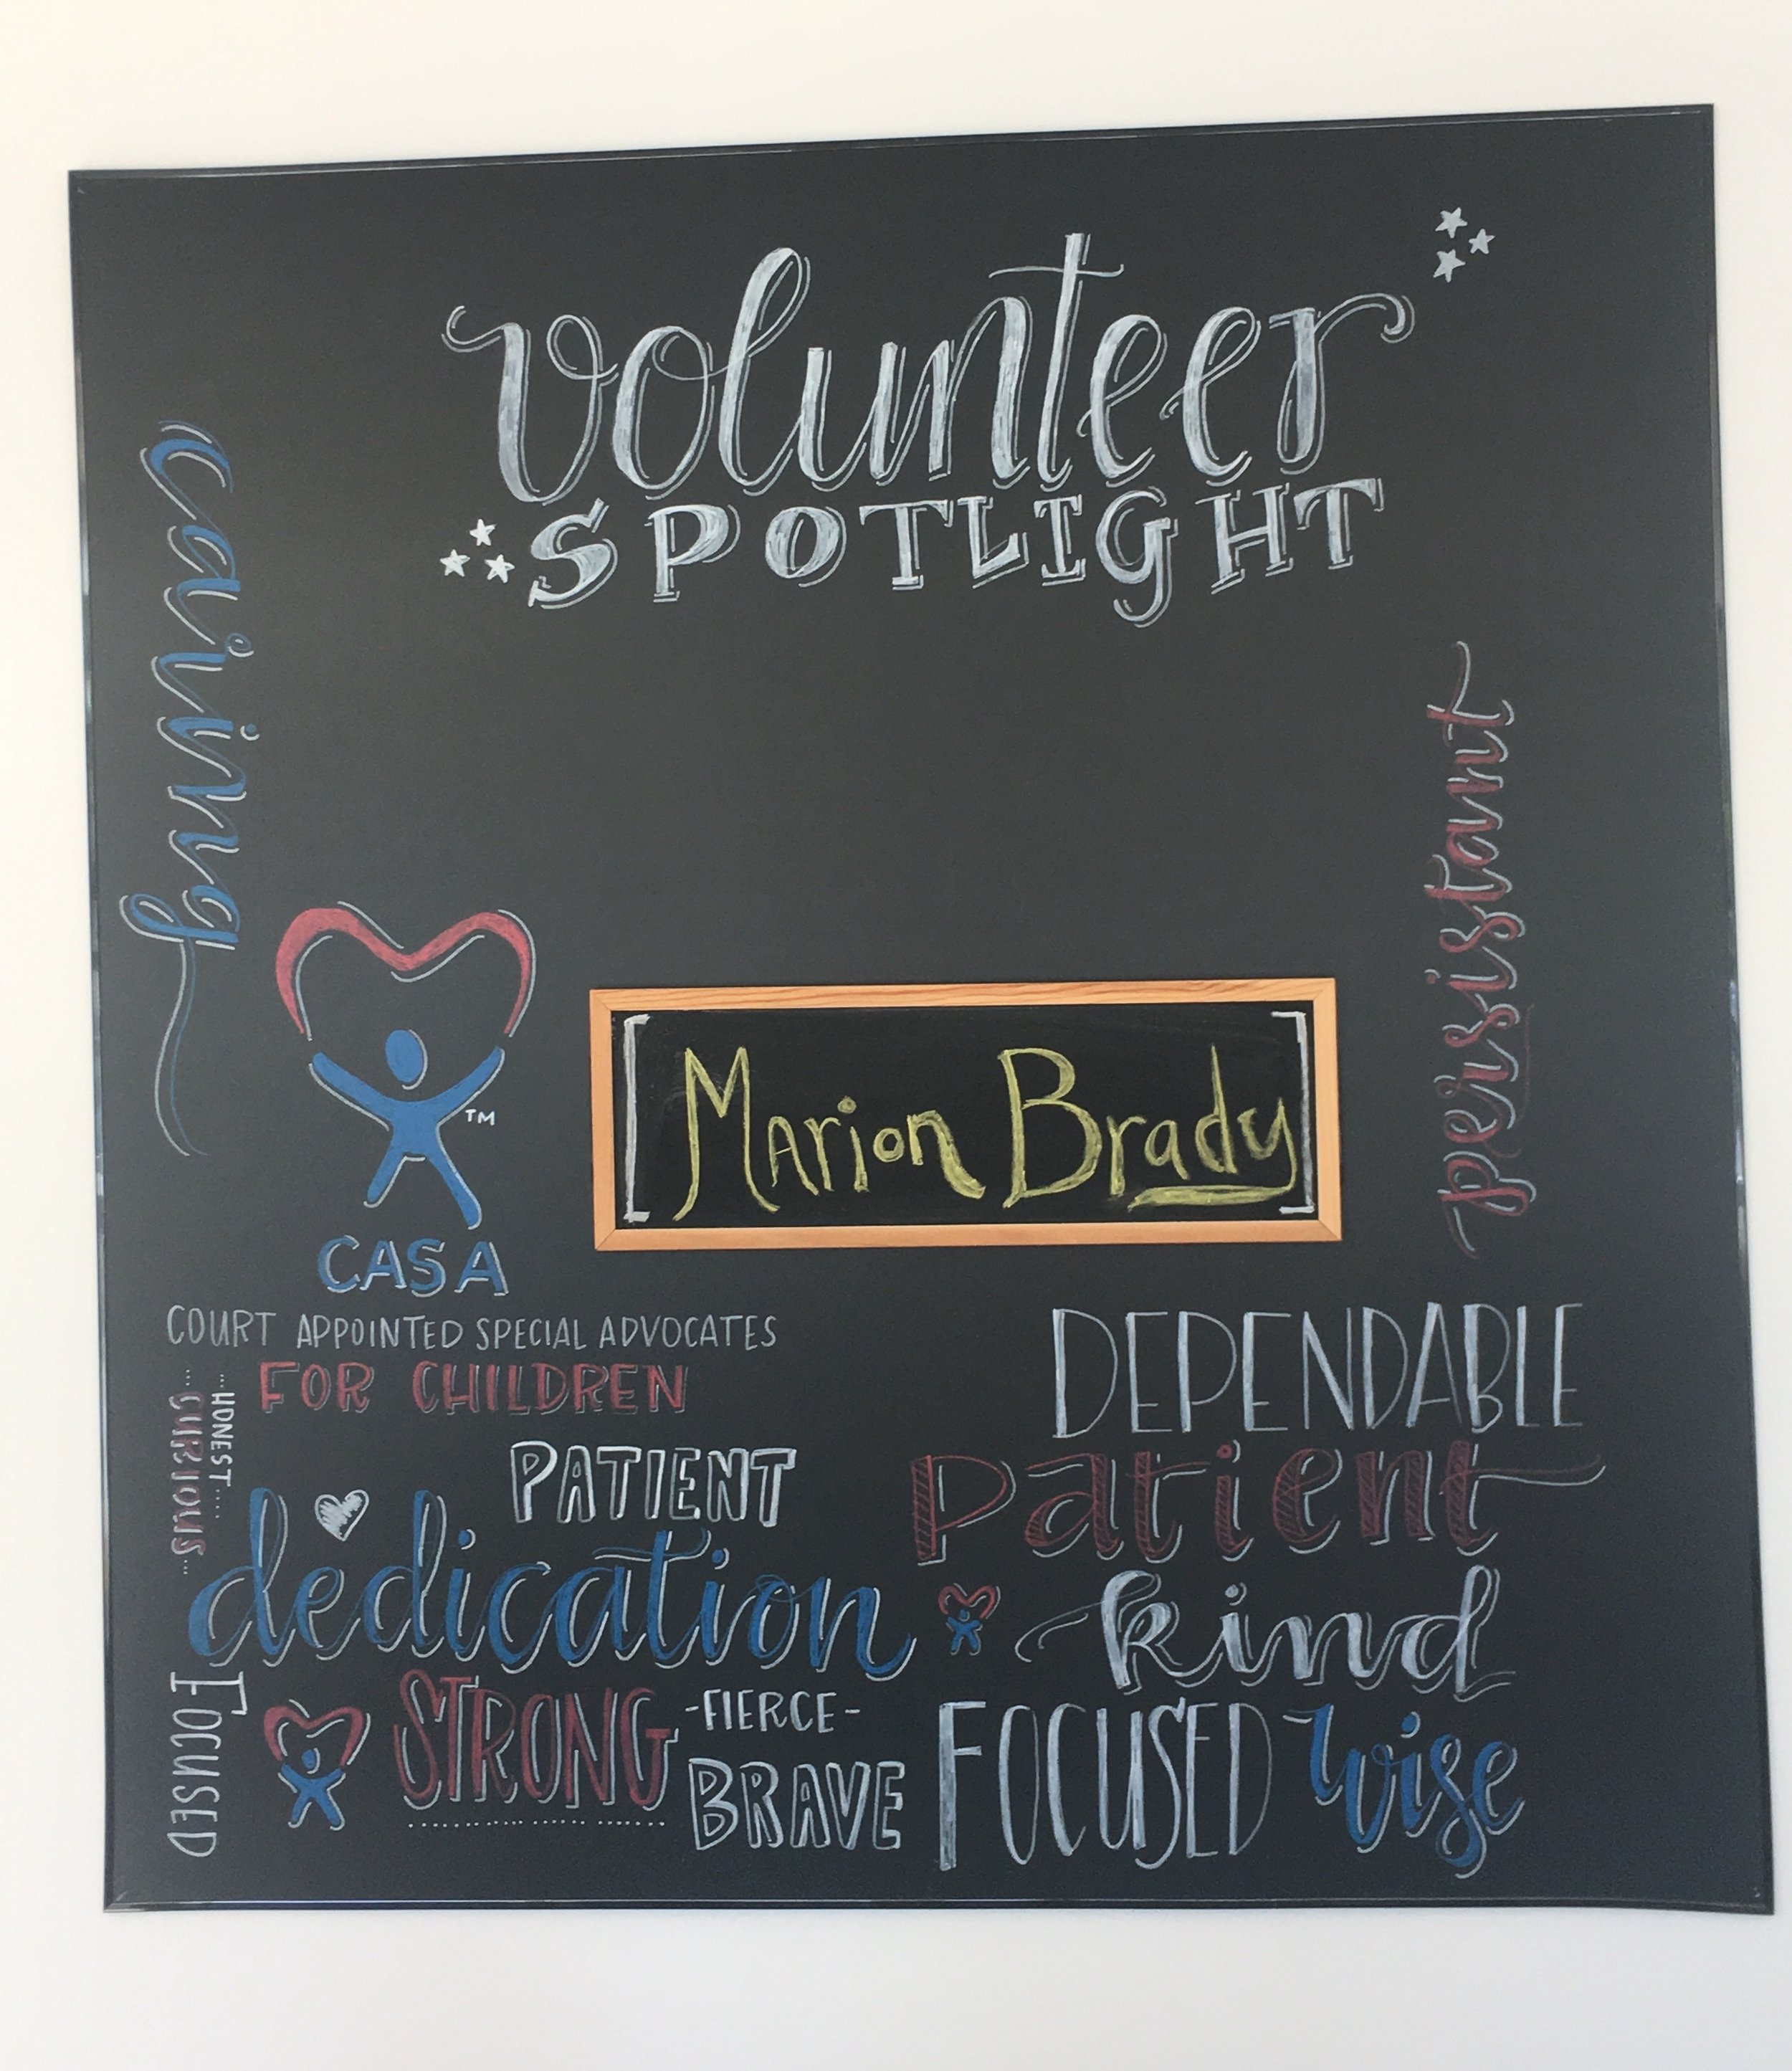 volunteer
SPOTLIGHT
caring
persistant
TM
[Marion Brady]
CASA
COURT APPOINTED SPECIAL ADVOCATES
FOR CHILDREN
...HONEST....
...CURIOUS...
DEPENDABLE
PATIENT
patient
dedication
kind
FOCUSED
STRONG
-FIERCE-
BRAVE
FOCUSED
wise